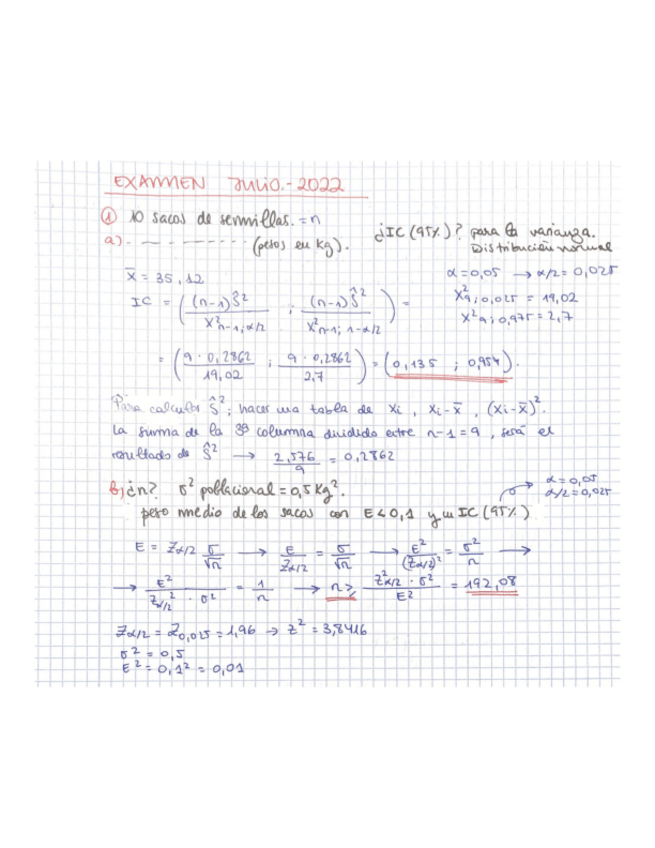 EXAMEN JULIO.-2022
① 10 sacos de semillas. = n
a). - - - - - - - - - - (pesos en kg). ¿IC (95%)? para la varianza.
Distribución normal
x̄ = 35,12
α = 0,05 → α/2 = 0,025
IC = ( (n-1)Ŝ² / X²n-1; α/2 ; (n-1)Ŝ² / X²n-1; 1-α/2 ) =
X²9; 0,025 = 19,02
X²9; 0,975 = 2,7
= ( 9 · 0,2862 / 19,02 ; 9 · 0,2862 / 2,7 ) = (0,135 ; 0,954).
Para calcular Ŝ²; hacer una tabla de xi, xi-x̄, (xi-x̄)².
La suma de la 3ª columna dividido entre n-1 = 9, será el
resultado de Ŝ² → 2,576 / 9 = 0,2862
b) ¿n? σ² poblacional = 0,5 Kg².
α = 0,05
α/2 = 0,025
peso medio de los sacos con E < 0,1 y un IC (95%)
E = Zα/2 σ/√n → E/Zα/2 = σ/√n → E²/(Zα/2)² = σ²/n →
→ E² / Zα/2² · σ² = 1/n → n ≥ Z²α/2 · σ² / E² = 192,08
Zα/2 = Z0,025 = 1,96 → z² = 3,8416
σ² = 0,5
E² = 0,1² = 0,01